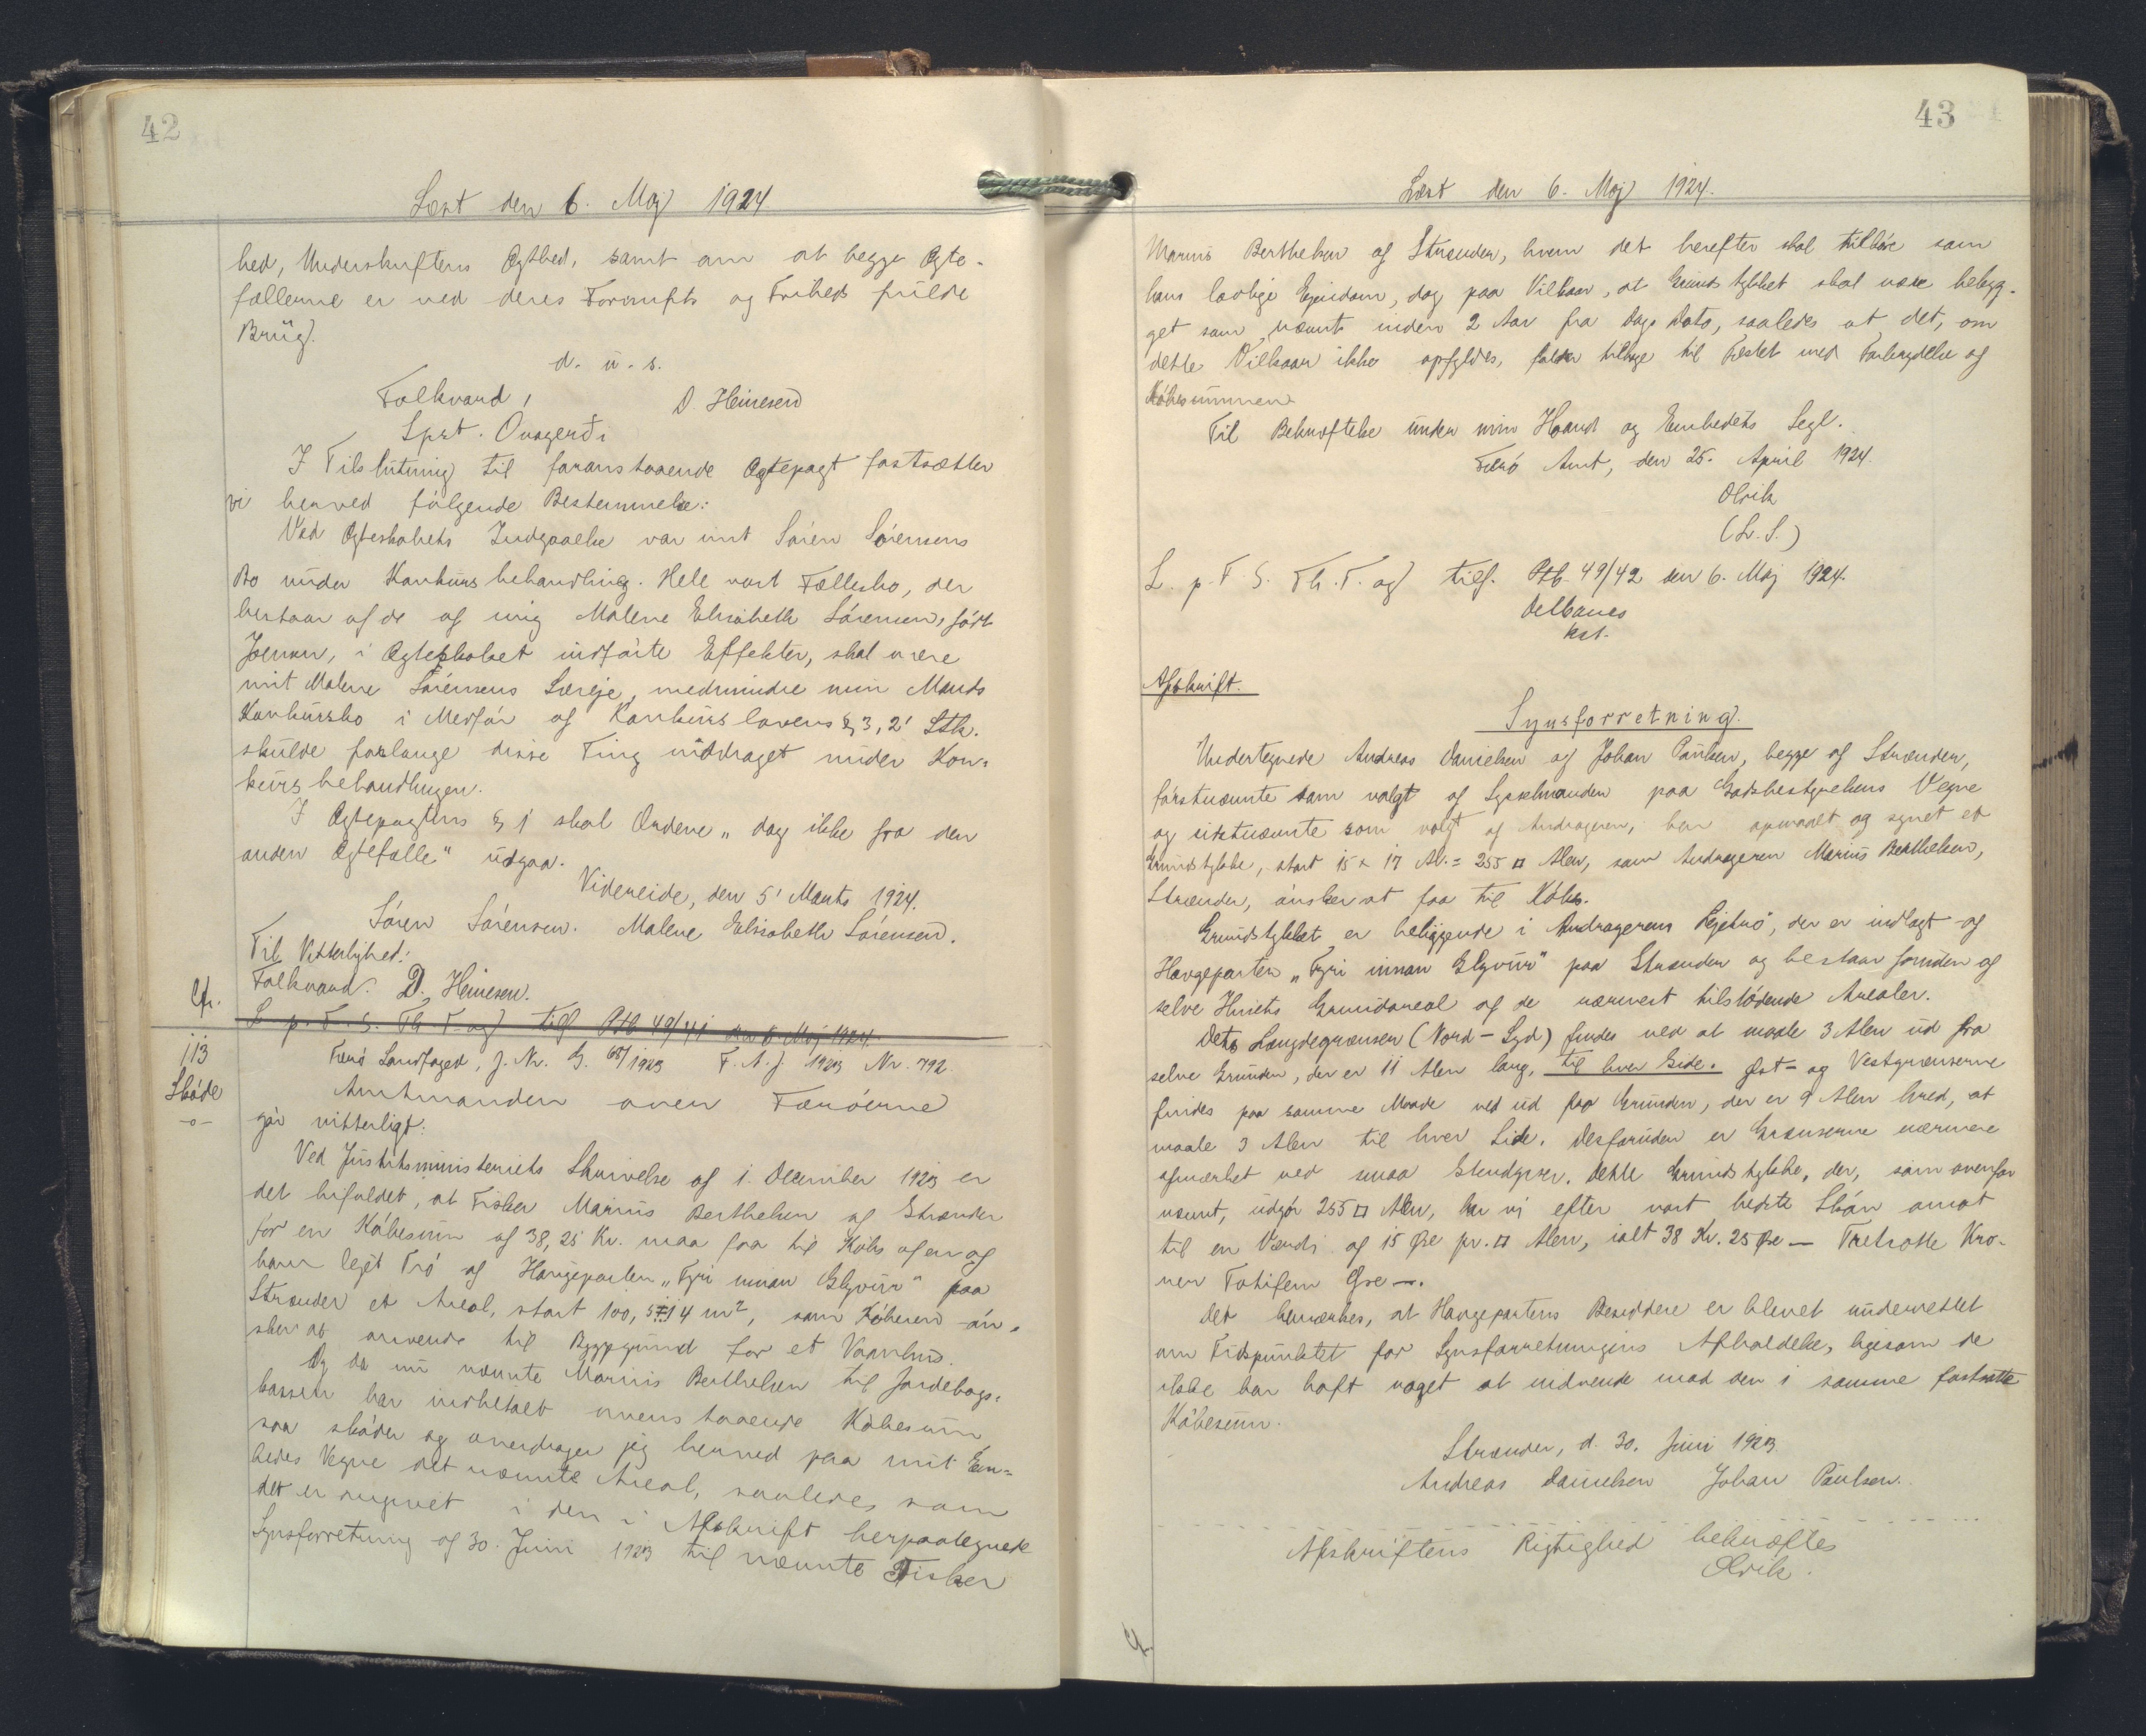 42
Læst den 6. Maj 1924
hed, Underskriftens Ægthed, samt om at begge Ægte-
fællerne er ved deres Fornufts og Friheds fulde
Brug.
d. u. s.
Folkvard, D. Heinesen
Sprt. Onagerði
I Tilslutning til foranstaaende Ægtepagt fastsætter
vi herved følgende Bestemmelse:
Ved Ægteskabets Indgaaelse var mit Sören Sörensens
Bo under Konkursbehandling. Hele vort Fællesbo, der
bestaar af de af mig Malene Elisabeth Sörensen, født
Joensen, i Ægteskabet indförte Effekter, skal være
mit Malene Sörensens Særeje, medmindre min Mands
Konkursbo i Medför af Konkurslovens § 3, 2' Stk.
skulde forlange disse Ting inddraget under Kon-
kursbehandlingen.
I Ægtepagtens § 1 skal Ordene „dog ikke fra den
anden Ægtefælle" udgaa.
Videreide, den 5' Marts 1924.
Sören Sörensen. Malene Elisabeth Sörensen.
Til Vitterlighed:
Folkvard. D. Heinesen.
Cfr.
L. p. F. S. Th. T. og tilf. Ptb 49/41 den 6 Maj 1924
113
Sköde
-o-
Færö Landfoged, J. Nr. G. 68/1923 F. A. J. 1923 Nr. 792.
Amtmanden over Færöerne
gör vitterligt:
Ved Justitsministeriets Skrivelse af 1. December 1923 er
det bifaldet, at Fisker Marius Berthelsen af Strænder
for en Köbesum af 38,25 Kr. maa faa til Köbs af en af
ham lejet Trö af Haugeparten „Fyri innan Glyvur" paa
Strænder et Areal, stort 100,514 m², som Köberen ön-
sker at anvende til Byggegrund for et Vaanhus.
Og da nu nævnte Marius Berthelsen til Jordebogs-
kassen har indbetalt ovenstaaende Köbesum
saa sköder og overdrager jeg herved paa mit Em-
bedes Vegne det nævnte Areal, saaledes som
det er angivet i den i Afskrift herpaategnede
Synsforretning af 30. Juni 1923 til nævnte Fisker
43
Læst den 6. Maj 1924.
Marius Berthelsen af Strænder, hvem det herefter skal tilhöre som
hans lovlige Ejendom, dog paa Vilkaar, at Grundstykket skal være bebyg-
get som nævnt inden 2 Aar fra Dags Dato, saaledes at det, om
dette Vilkaar ikke opfyldes, falder tilbage til Fæstet med Forbrydelse af
Köbesummen.
Til Bekræftelse under min Haand og Embedets Segl.
Færö Amt, den 25. April 1924.
Olrik
(L. S.)
L. p. F. S. Th. T. og tilf. Ptb 49/42 den 6. Maj 1924.
Delbanco
kst.
Afskrift.
Synsforretning.
Undertegnede Andreas Danielsen og Johan Paulsen, begge af Strænder,
förstnævnte som valgt af Sysselmanden paa Godsbestyrelsens Vegne
og sidstnævnte som valgt af Andrageren, har opmaalt og synet et
Grundstykke, stort 15 × 17 Al. = 255 □ Alen, som Andrageren Marius Berthelsen,
Strænder, önsker at faa til Köbs.
Grundstykket er beliggende i Andragerens Lejetrö, der er indlagt af
Haugeparten „Fyri innan Glyvur" paa Strænder og bestaar foruden af
selve Husets Grundareal af de nærmest tilstödende Arealer.
Dets Længdegrænser (Nord - Syd) findes ved at maale 3 Alen ud fra
selve Grunden, der er 11 Alen lang, til hver Side. Öst- og Vestgrænserne
findes paa samme Maade ved ud fra Grunden, der er 9 Alen bred, at
maale 3 Alen til hver Side. Desforuden er Grænserne nærmere
afmærket ved smaa Stendyser. Dette Grundstykke, der, som ovenfor
nævnt, udgör 255 □ Alen, har vi efter vort bedste Skön ansat
til en Værdi af 15 Øre pr. □ Alen, ialt 38 Kr. 25 Øre — Tretiotte Kro-
ner Totifem Øre —.
Det bemærkes, at Haugepartens Besiddere er blevet underrettet
om Tidspunktet for Synsforretningens Afholdelse, ligesom de
ikke har haft noget at indvende mod den i samme fastsatte
Köbesum.
Strænder, d. 30. Juni 1923.
Andreas Danielsen Johan Paulsen.
Afskriftens Rigtighed bekræftes
Olrik.